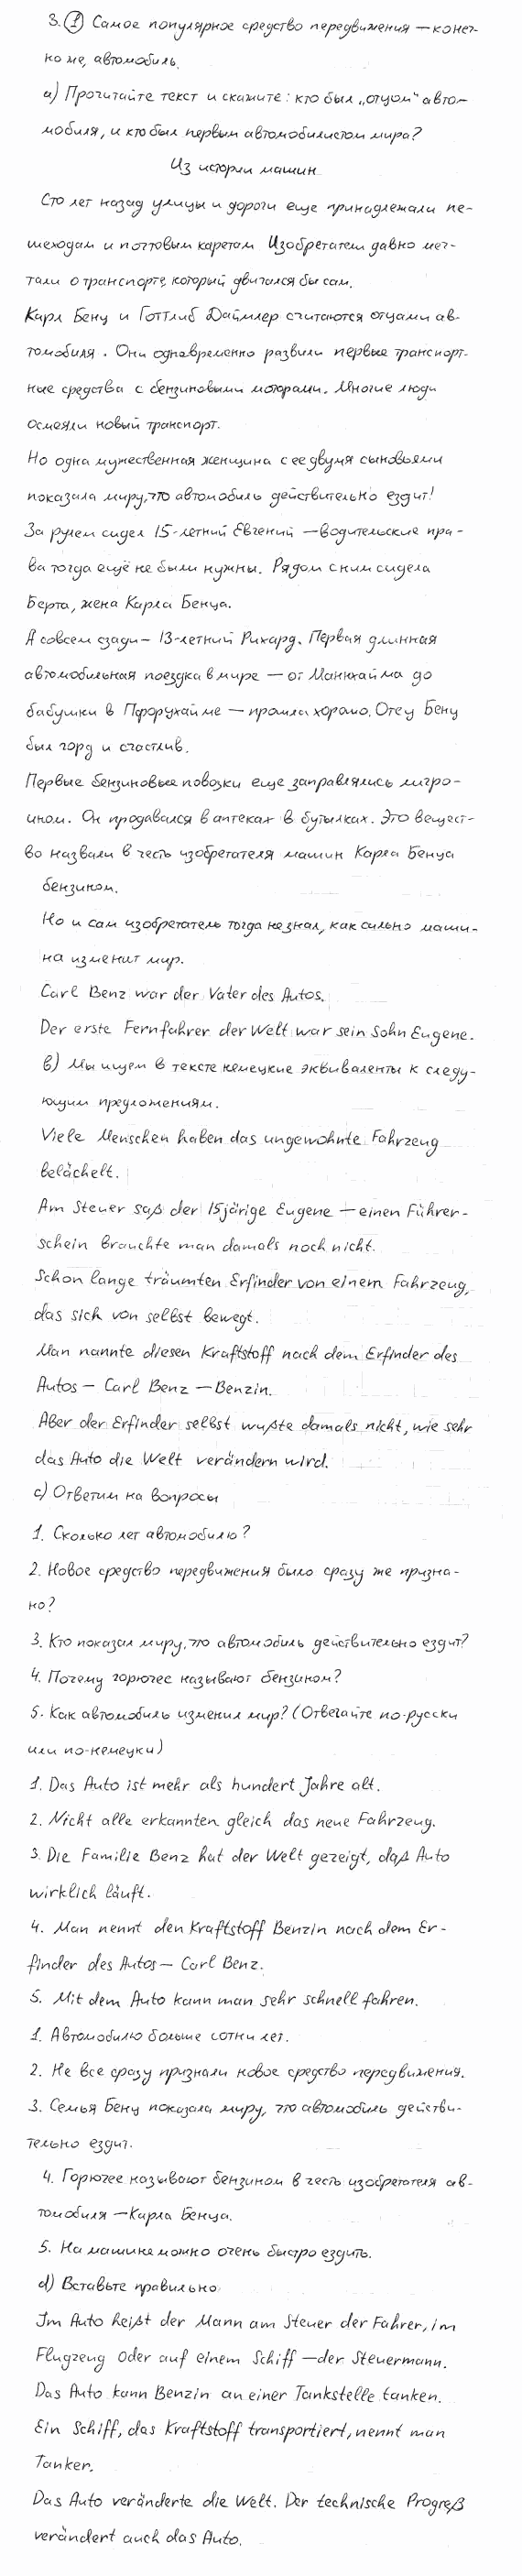 3. ① Самое популярное средство передвижения — конеч-
но же, автомобиль.
а) Прочитайте текст и скажите: кто был „отцом" авто-
мобиля, и кто был первым автомобилистом мира?
Из истории машин
Сто лет назад улицы и дороги еще принадлежали пе-
шеходам и почтовым каретам. Изобретатели давно меч-
тали о транспорте, который двигался бы сам.
Карл Бенц и Готтлиб Даймлер считаются отцами ав-
томобиля. Они одновременно развили первые транспорт-
ные средства с бензиновыми моторами. Многие люди
осмеяли новый транспорт.
Но одна мужественная женщина с ее двумя сыновьями
показала миру, что автомобиль действительно ездит!
За рулем сидел 15-летний Евгений — водительские пра-
ва тогда ещё не были нужны. Рядом с ним сидела
Берта, жена Карла Бенца.
А совсем сзади — 13-летний Рихард. Первая длинная
автомобильная поездка в мире — от Маннхайма до
бабушки в Пфорцхайме — прошла хорошо. Отец Бенц
был горд и счастлив.
Первые бензиновые повозки еще заправлялись лигро-
ином. Он продавался в аптеках в бутылках. Это вещест-
во назвали в честь изобретателя машин Карла Бенца
бензином.
Но и сам изобретатель тогда не знал, как сильно маши-
на изменит мир.
Carl Benz war der Vater des Autos.
Der erste Fernfahrer der Welt war sein Sohn Eugene.
в) Мы ищем в тексте немецкие эквиваленты к следу-
ющим предложениям.
Viele Menschen haben das ungewohnte Fahrzeug
belächelt.
Am Steuer saß der 15järige Eugene — einen Führer-
schein brauchte man damals noch nicht.
Schon lange träumten Erfinder von einem Fahrzeug,
das sich von selbst bewegt.
Man nannte diesen Kraftstoff nach dem Erfinder des
Autos — Carl Benz — Benzin.
Aber der Erfinder selbst wußte damals nicht, wie sehr
das Auto die Welt verändern wird.
с) Ответим на вопросы
1. Сколько лет автомобилю?
2. Новое средство передвижения было сразу же призна-
но?
3. Кто показал миру, что автомобиль действительно ездит?
4. Почему горючее называют бензином?
5. Как автомобиль изменил мир? (Отвечайте по-русски
или по-немецки)
1. Das Auto ist mehr als hundert Jahre alt.
2. Nicht alle erkannten gleich das neue Fahrzeug.
3. Die Familie Benz hat der Welt gezeigt, daß Auto
wirklich läuft.
4. Man nennt den Kraftstoff Benzin nach dem Er-
finder des Autos — Carl Benz.
5. Mit dem Auto kann man sehr schnell fahren.
1. Автомобилю больше сотни лет.
2. Не все сразу признали новое средство передвижения.
3. Семья Бенц показала миру, что автомобиль действи-
тельно ездит.
4. Горючее называют бензином в честь изобретателя ав-
томобиля — Карла Бенца.
5. На машине можно очень быстро ездить.
d) Вставьте правильно
Im Auto heißt der Mann am Steuer der Fahrer, im
Flugzeug oder auf einem Schiff — der Steuermann.
Das Auto kann Benzin an einer Tankstelle tanken.
Ein Schiff, das Kraftstoff transportiert, nennt man
Tanker.
Das Auto veränderte die Welt. Der technische Progreß
verändert auch das Auto.